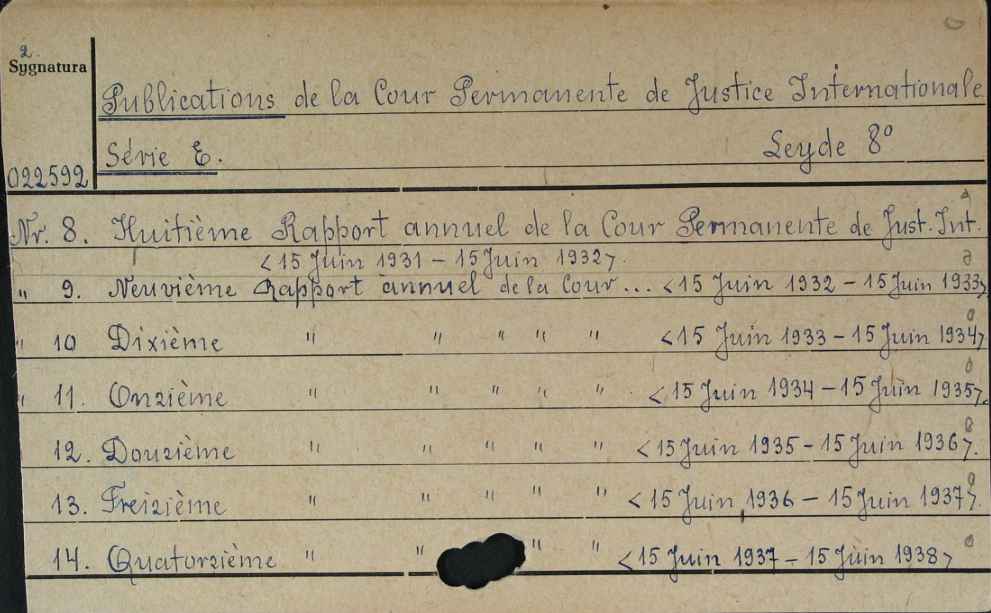 2.
Sygnatura
Publications de la Cour Permanente de Justice Internationale
Série E. Leyde 8°
022592
Nr. 8. Huitième Rapport annuel de la Cour Permanente de Just. Int.
<15 Juin 1931 - 15 Juin 1932>.
" 9. Neuvième Rapport annuel de la Cour... <15 Juin 1932 - 15 Juin 1933>
" 10 Dixième " " " " " <15 Juin 1933 - 15 Juin 1934>
" 11. Onzième " " " " " <15 Juin 1934 - 15 Juin 1935>.
12. Douzième " " " " " <15 Juin 1935 - 15 Juin 1936>.
13. Treizième " " " " " <15 Juin 1936 - 15 Juin 1937>.
14. Quatorzième " " " " <15 Juin 1937 - 15 Juin 1938>